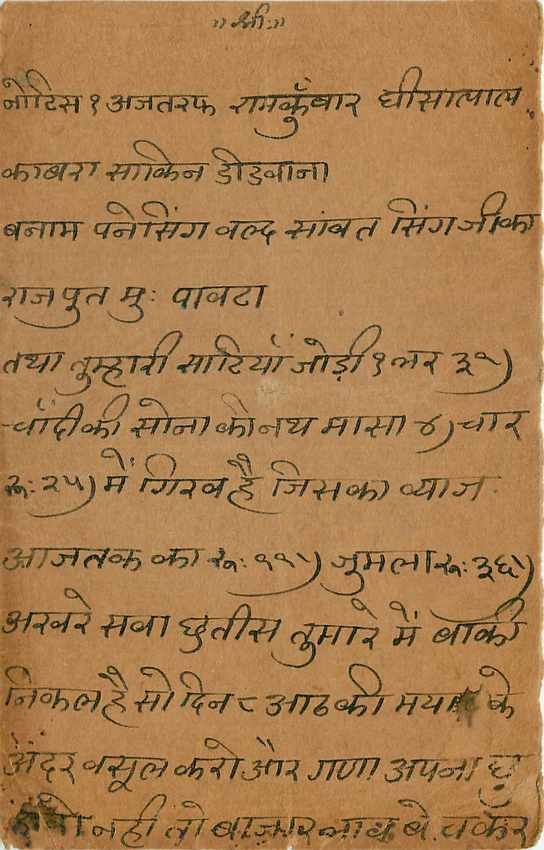 ॥ श्रीः ॥
नोटिस १ अजतरफ रामकुँवार घीसालाल
काबरा साकिन डीडवाना
बनाम पनेसिंग वल्द सांवत सिंग जी का
राजपुत मुः पावटा
तथा तुम्हारी साटियाँ जोड़ी १ भर ३१)
चाँदी की सोना की नथ मासा ४) चार
रू: २५) में गिरव है जिसका व्याज
आजतक का रू: ११।) जुमला रू: ३६।)
अखरे सवा छतीस तुमारे में बाकी
निकल है सो दिन ८ आठ की मयाद के
अंदर वसूल करो और गणा अपना छु
नही तो बाजार भाव बेचकर